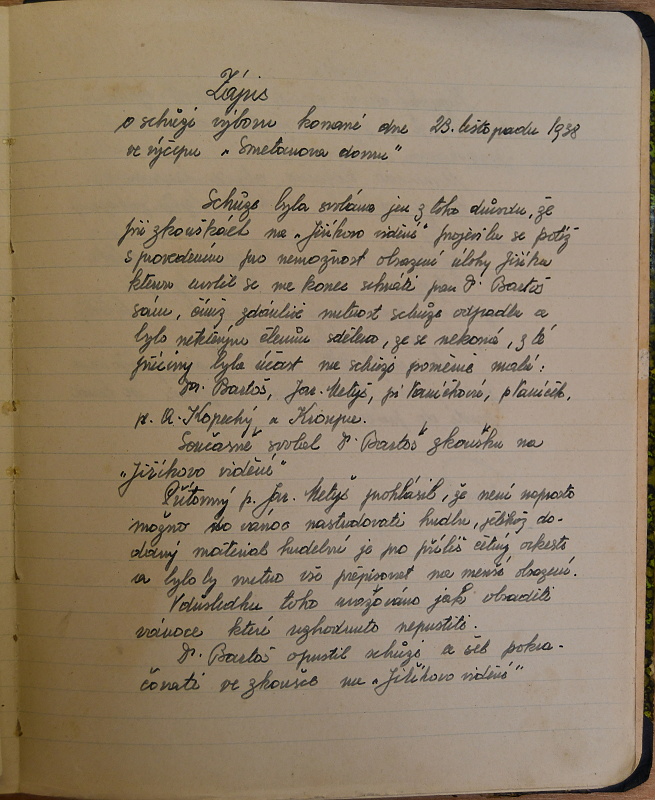 Zápis
o schůzi výboru konané dne 23. listopadu 1938
ve výčepu „Smetanova domu“
Schůze byla svolána jen z toho důvodu, že
při zkouškách na „Jiříkovo vidění“ projevila se potíž
s provedením pro nemožnost obsazení úlohy Jiříka
kterou uvolil se na konec sehráti pan Dr. Bartoš
sám, čímž zdánlivě nutnost schůze odpadla a
bylo některým členům sděleno, že se nekoná, z té
příčiny byla účast na schůzi poměrně malá:
Dr. Bartoš, Jar. Metyš, pí Vaníčková, p Vaníček,
p. A. Kopecký a Kroupa.
Současně svolal Dr. Bartoš zkoušku na
„Jiříkovo vidění“
Přítomný p. Jar. Metyš prohlásil, že není naprosto
možno do vánoc nastudovati hudbu, jelikož do-
daný materiál hudební je pro příliš četný orkestr
a bylo by nutno vše přepisovat na menší obsazení.
V důsledku toho uvažováno jak obsaditi
vánoce které rozhodnuto nepustiti.
Dr. Bartoš opustil schůzi a šel pokra-
čovati ve zkoušce na „Jiříkovo vidění“